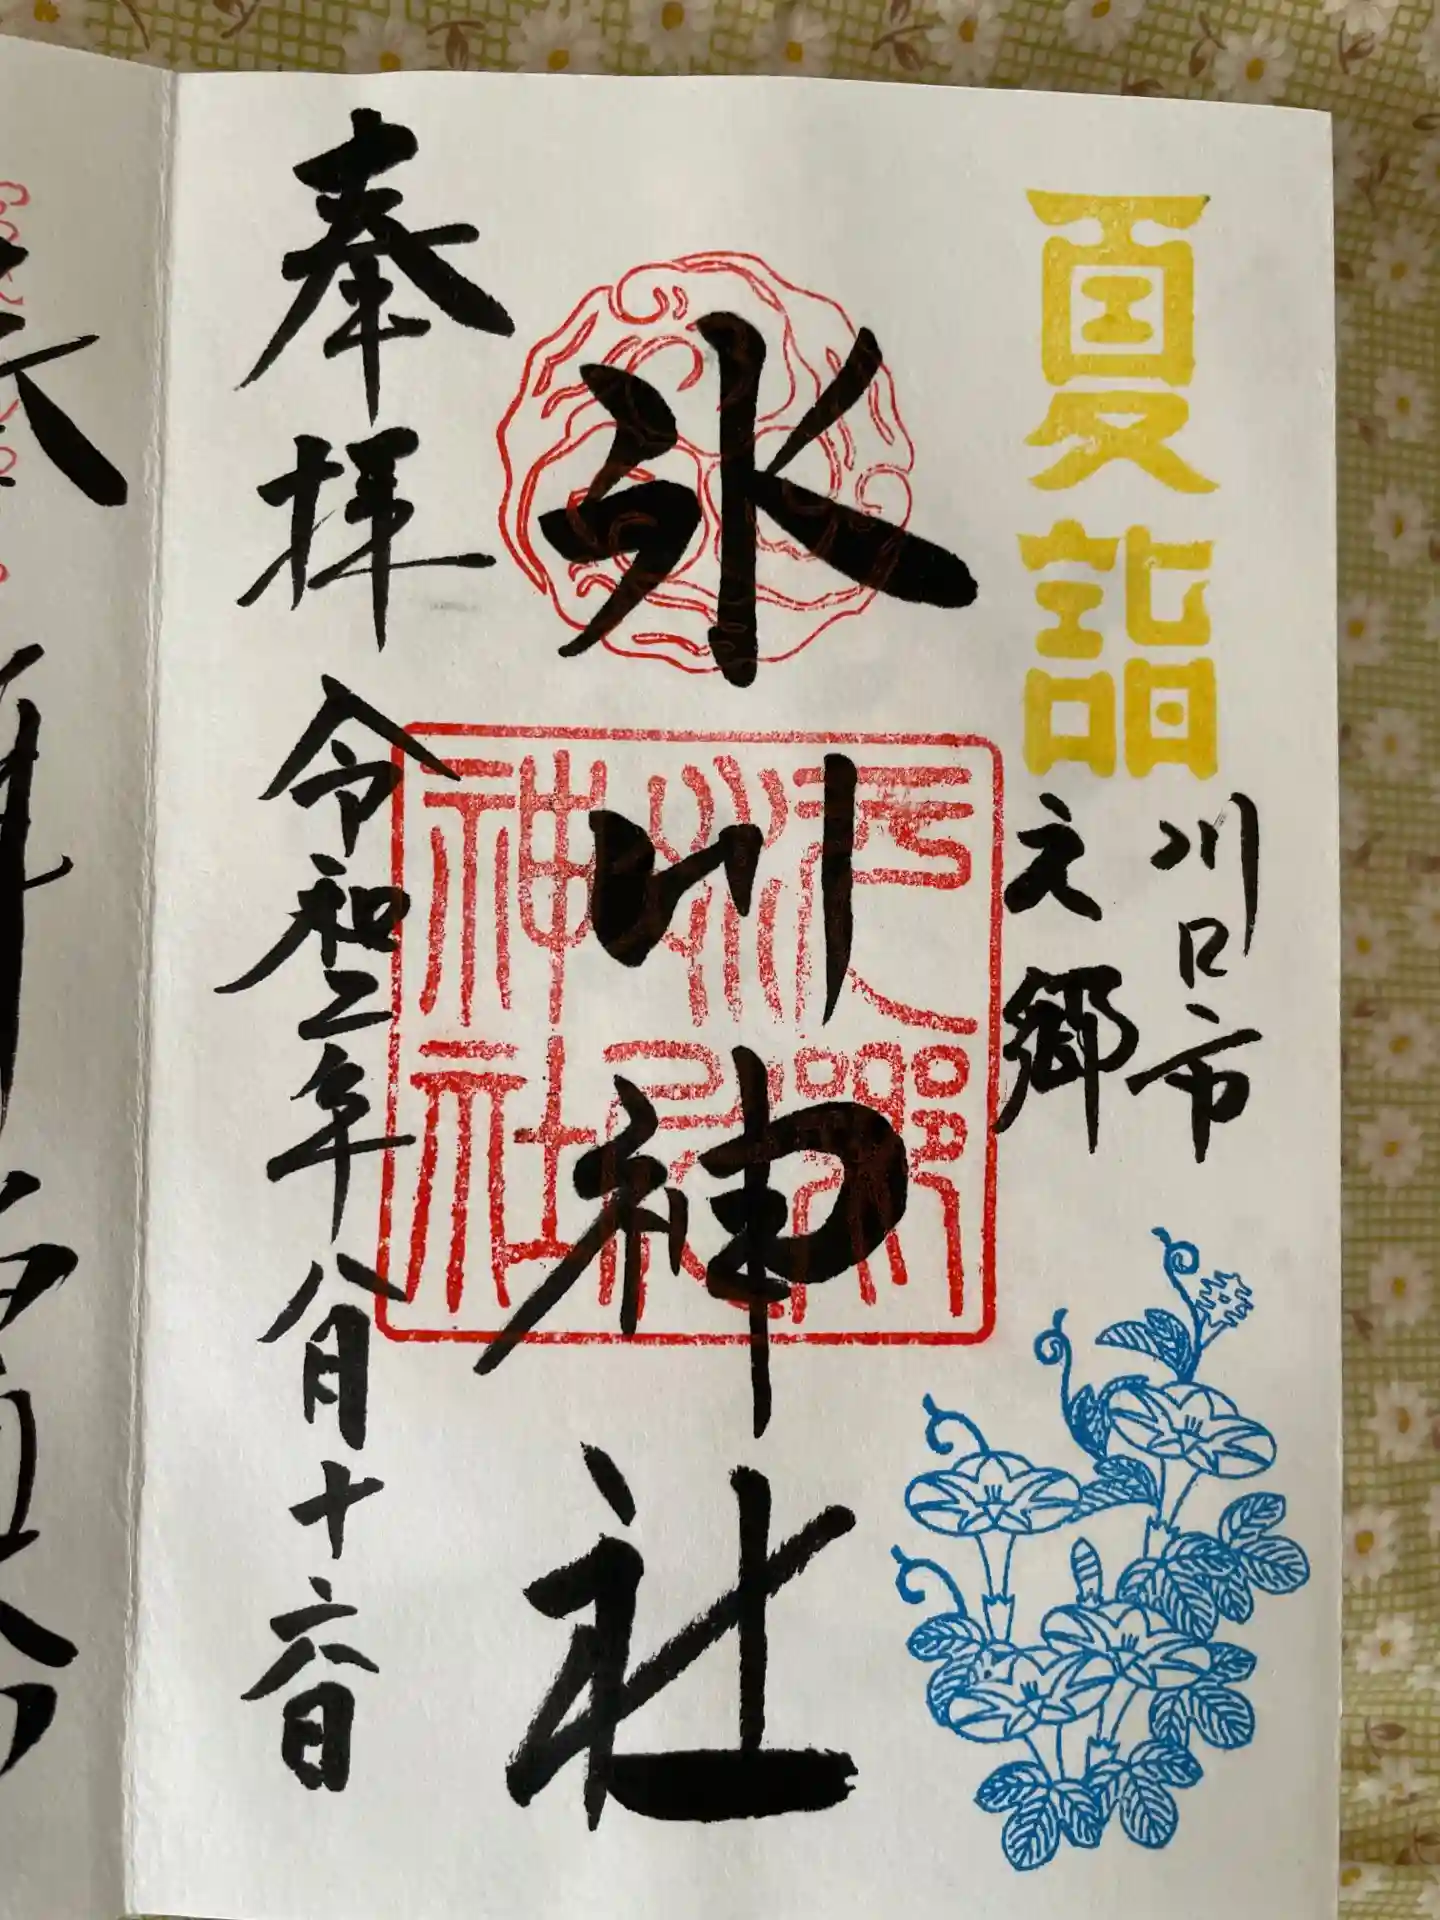 夏詣
川口市
元郷
氷川神社
元郷
氷川
神社
奉拝
令和二年八月十六日